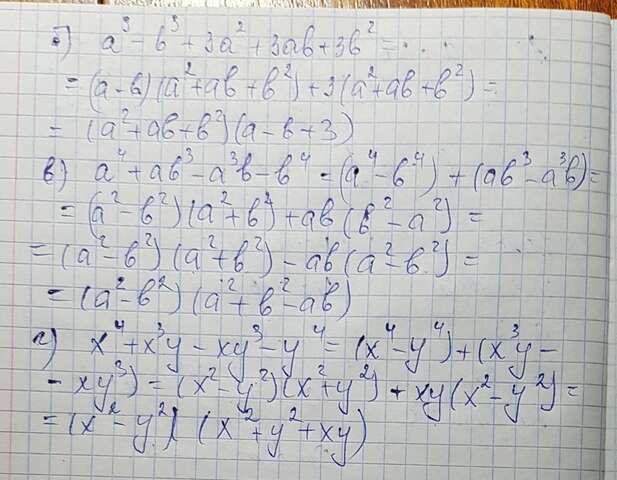 б) a³ - b³ + 3a² + 3ab + 3b² = ...
= (a - b)(a² + ab + b²) + 3(a² + ab + b²) =
= (a² + ab + b²)(a - b + 3)
в) a⁴ + ab³ - a³b - b⁴ = (a⁴ - b⁴) + (ab³ - a³b) =
= (a² - b²)(a² + b²) + ab(b² - a²) =
= (a² - b²)(a² + b²) - ab(a² - b²) =
= (a² - b²)(a² + b² - ab)
г) x⁴ + x³y - xy³ - y⁴ = (x⁴ - y⁴) + (x³y -
- xy³) = (x² - y²)(x² + y²) + xy(x² - y²) =
= (x² - y²)(x² + y² + xy)